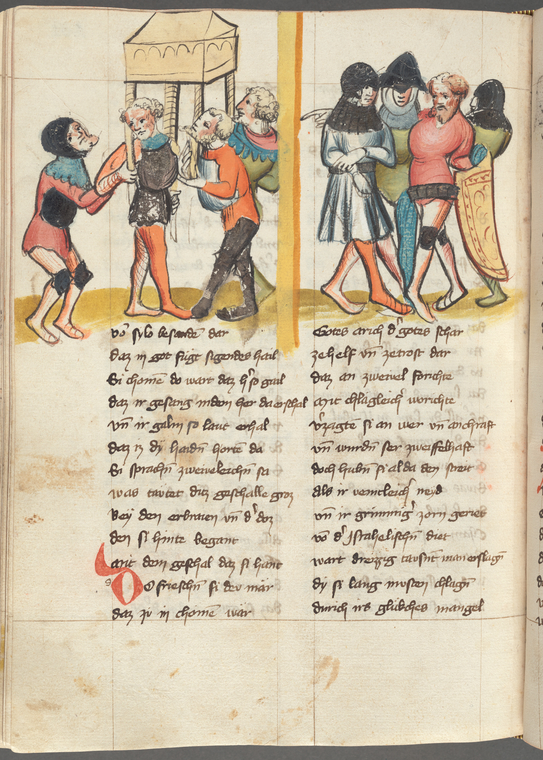 võ sylo besande dar
daz in got fugt sigendes hail
Si chomē do wart daz h's so grail
daz ir gesang in dem her da erschal
vñ ir galm so laut erhal
daz iz dÿ haidñ hortē da
Si sprachñ zweiveleichñ sa
was tawtet ditz geschalle groz
beÿ den erbraien vñ d' doz
den si hinte begant
mit dem geschal daz si hant
Do frieschñ si dev mär
daz zv in chomē war
Gotes arich d' gotes schar
ze helf vñ ze trost dar
daz an zweivel forichte
mit chlagleich worichte
v'zagte si an wer vñ an chraft
vñ wurdñ ser zweiffelhaft
doch hubñ si al da den streit
als ir veintleich' neyd
vñ ir grimmig' zorn geriet
võ d' Israhelischñ diet
wart dreizzig tausñt man erslagñ
dÿ si lang mvsten chlagñ
durich irs glukches mangel